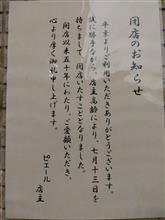 閉店のお知らせ
平素よりご利用いただきありがとうございます。
誠に勝手ながら、店主高齢により、七月十三日を
持ちまして、閉店いたすこととなりました。
開店以来五十年にわたり、ご愛顧いただき、
心より厚く御礼申し上げます。
ピエール
店主